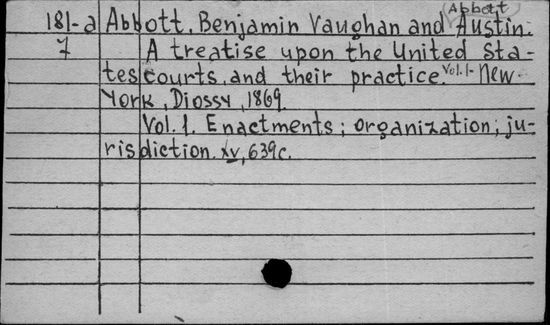 Abbott
181-a Abbott, Benjamin Vaughan and Austin.
7 A treatise upon the United Sta-
tes courts, and their practice. Vol. 1- New-
York, Diossy, 1869.
Vol. 1. Enactments; organization; ju-
risdiction. xv, 639c.